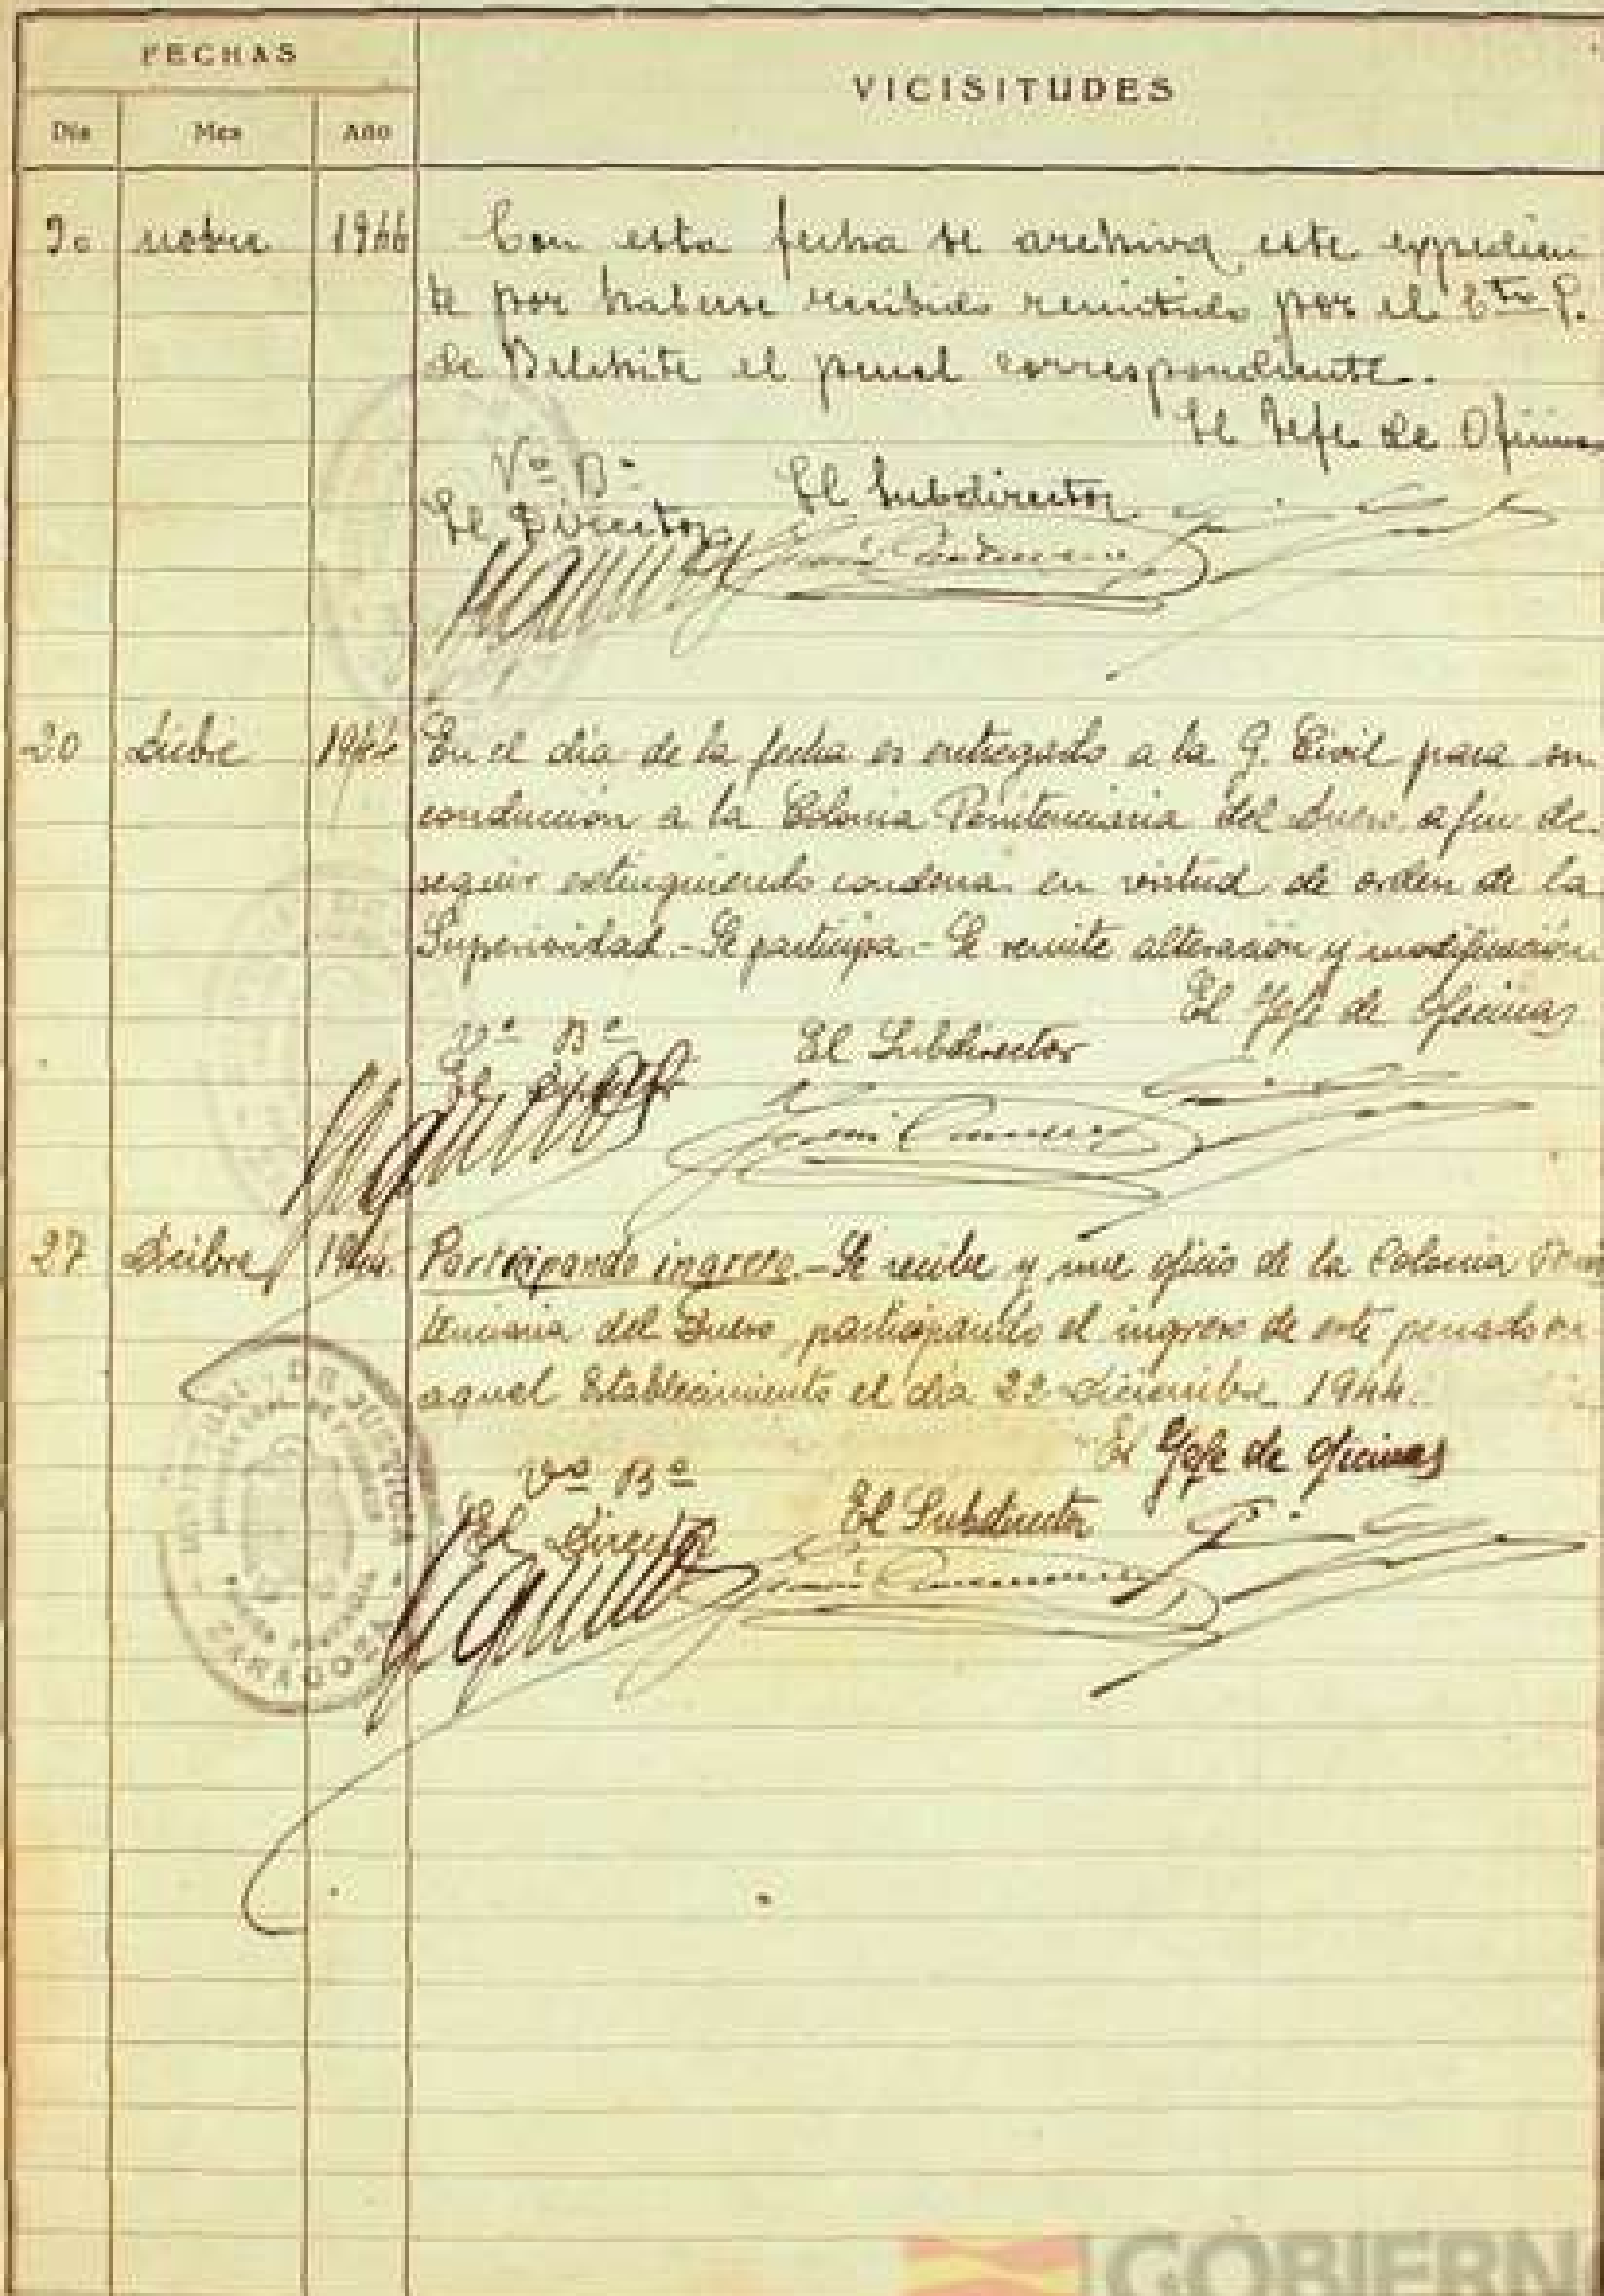 FECHAS
VICISITUDES
Día Mes Año
30 nobre 1944 Con esta fecha se archiva este expedien
te por haberse recibido remitido por el Cto P.
de Belchite el penal correspondiente.
El Jefe de Oficinas
Vº Bº
El Director El Subdirector
20 Dicbre 1944 En el día de la fecha es entregado a la G. Civil para su
conducción a la Colonia Penitenciaria del Dueso, a fin de
seguir extinguiendo condena en virtud de orden de la
Superioridad.- Se participa.- Se remite alteración y modificación.
El Jefe de Oficinas
Vº Bº El Subdirector
El Director
27 Dicibre 1944. Participando ingreso.- Se recibe y une oficio de la Colonia Peni
tenciaria del Dueso, participando el ingreso de este penado en
aquel Establecimiento el día 22 diciembre 1944.
El Jefe de Oficinas
Vº Bº
El Director El Subdirector
DE JUSTICIA
ZARAGOZA
GOBIERN